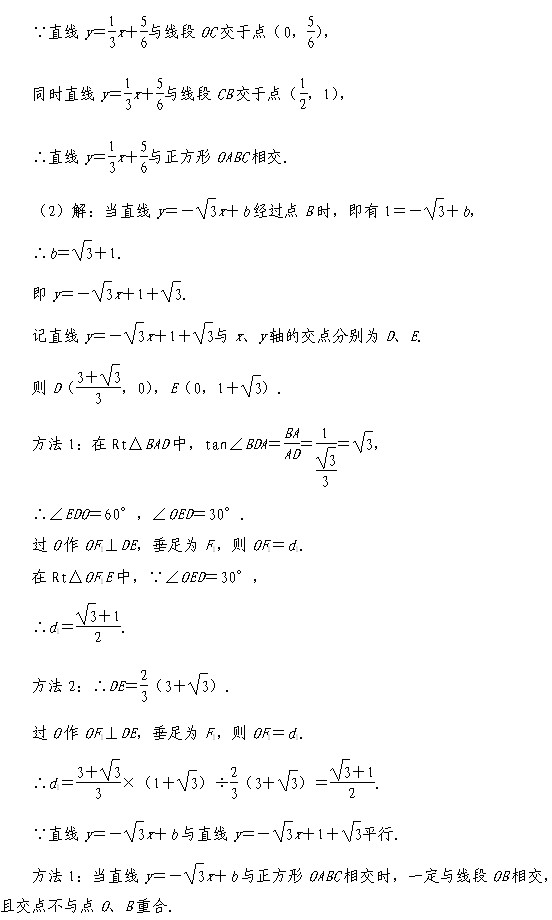 ∵直线 y=1/3x+5/6与线段 OC交于点(0,5/6),
同时直线 y=1/3x+5/6与线段 CB交于点(1/2,1),
∴直线 y=1/3x+5/6与正方形 OABC相交.
(2)解:当直线 y=-√3x+b经过点 B时,即有 1=-√3+b,
∴b=√3+1.
即 y=-√3x+1+√3.
记直线 y=-√3x+1+√3与 x、y轴的交点分别为 D、E.
则 D((3+√3)/3,0),E(0,1+√3).
方法1:在 Rt△BAD中,tan∠BDA=BA/AD=1/(√3/3)=√3,
∴∠EDO=60°,∠OED=30°.
过 O作 OF₁⊥DE,垂足为 F₁,则 OF₁=d₁.
在 Rt△OF₁E中,∵∠OED=30°,
∴d₁=(√3+1)/2.
方法2:∴DE=2/3(3+√3).
过 O作 OF₁⊥DE,垂足为 F₁,则 OF₁=d₁.
∴d₁=(3+√3)/3×(1+√3)÷2/3(3+√3)=(√3+1)/2.
∵直线 y=-√3x+b与直线 y=-√3x+1+√3平行.
方法1:当直线 y=-√3x+b与正方形 OABC相交时,一定与线段 OB相交,
且交点不与点 O、B重合.